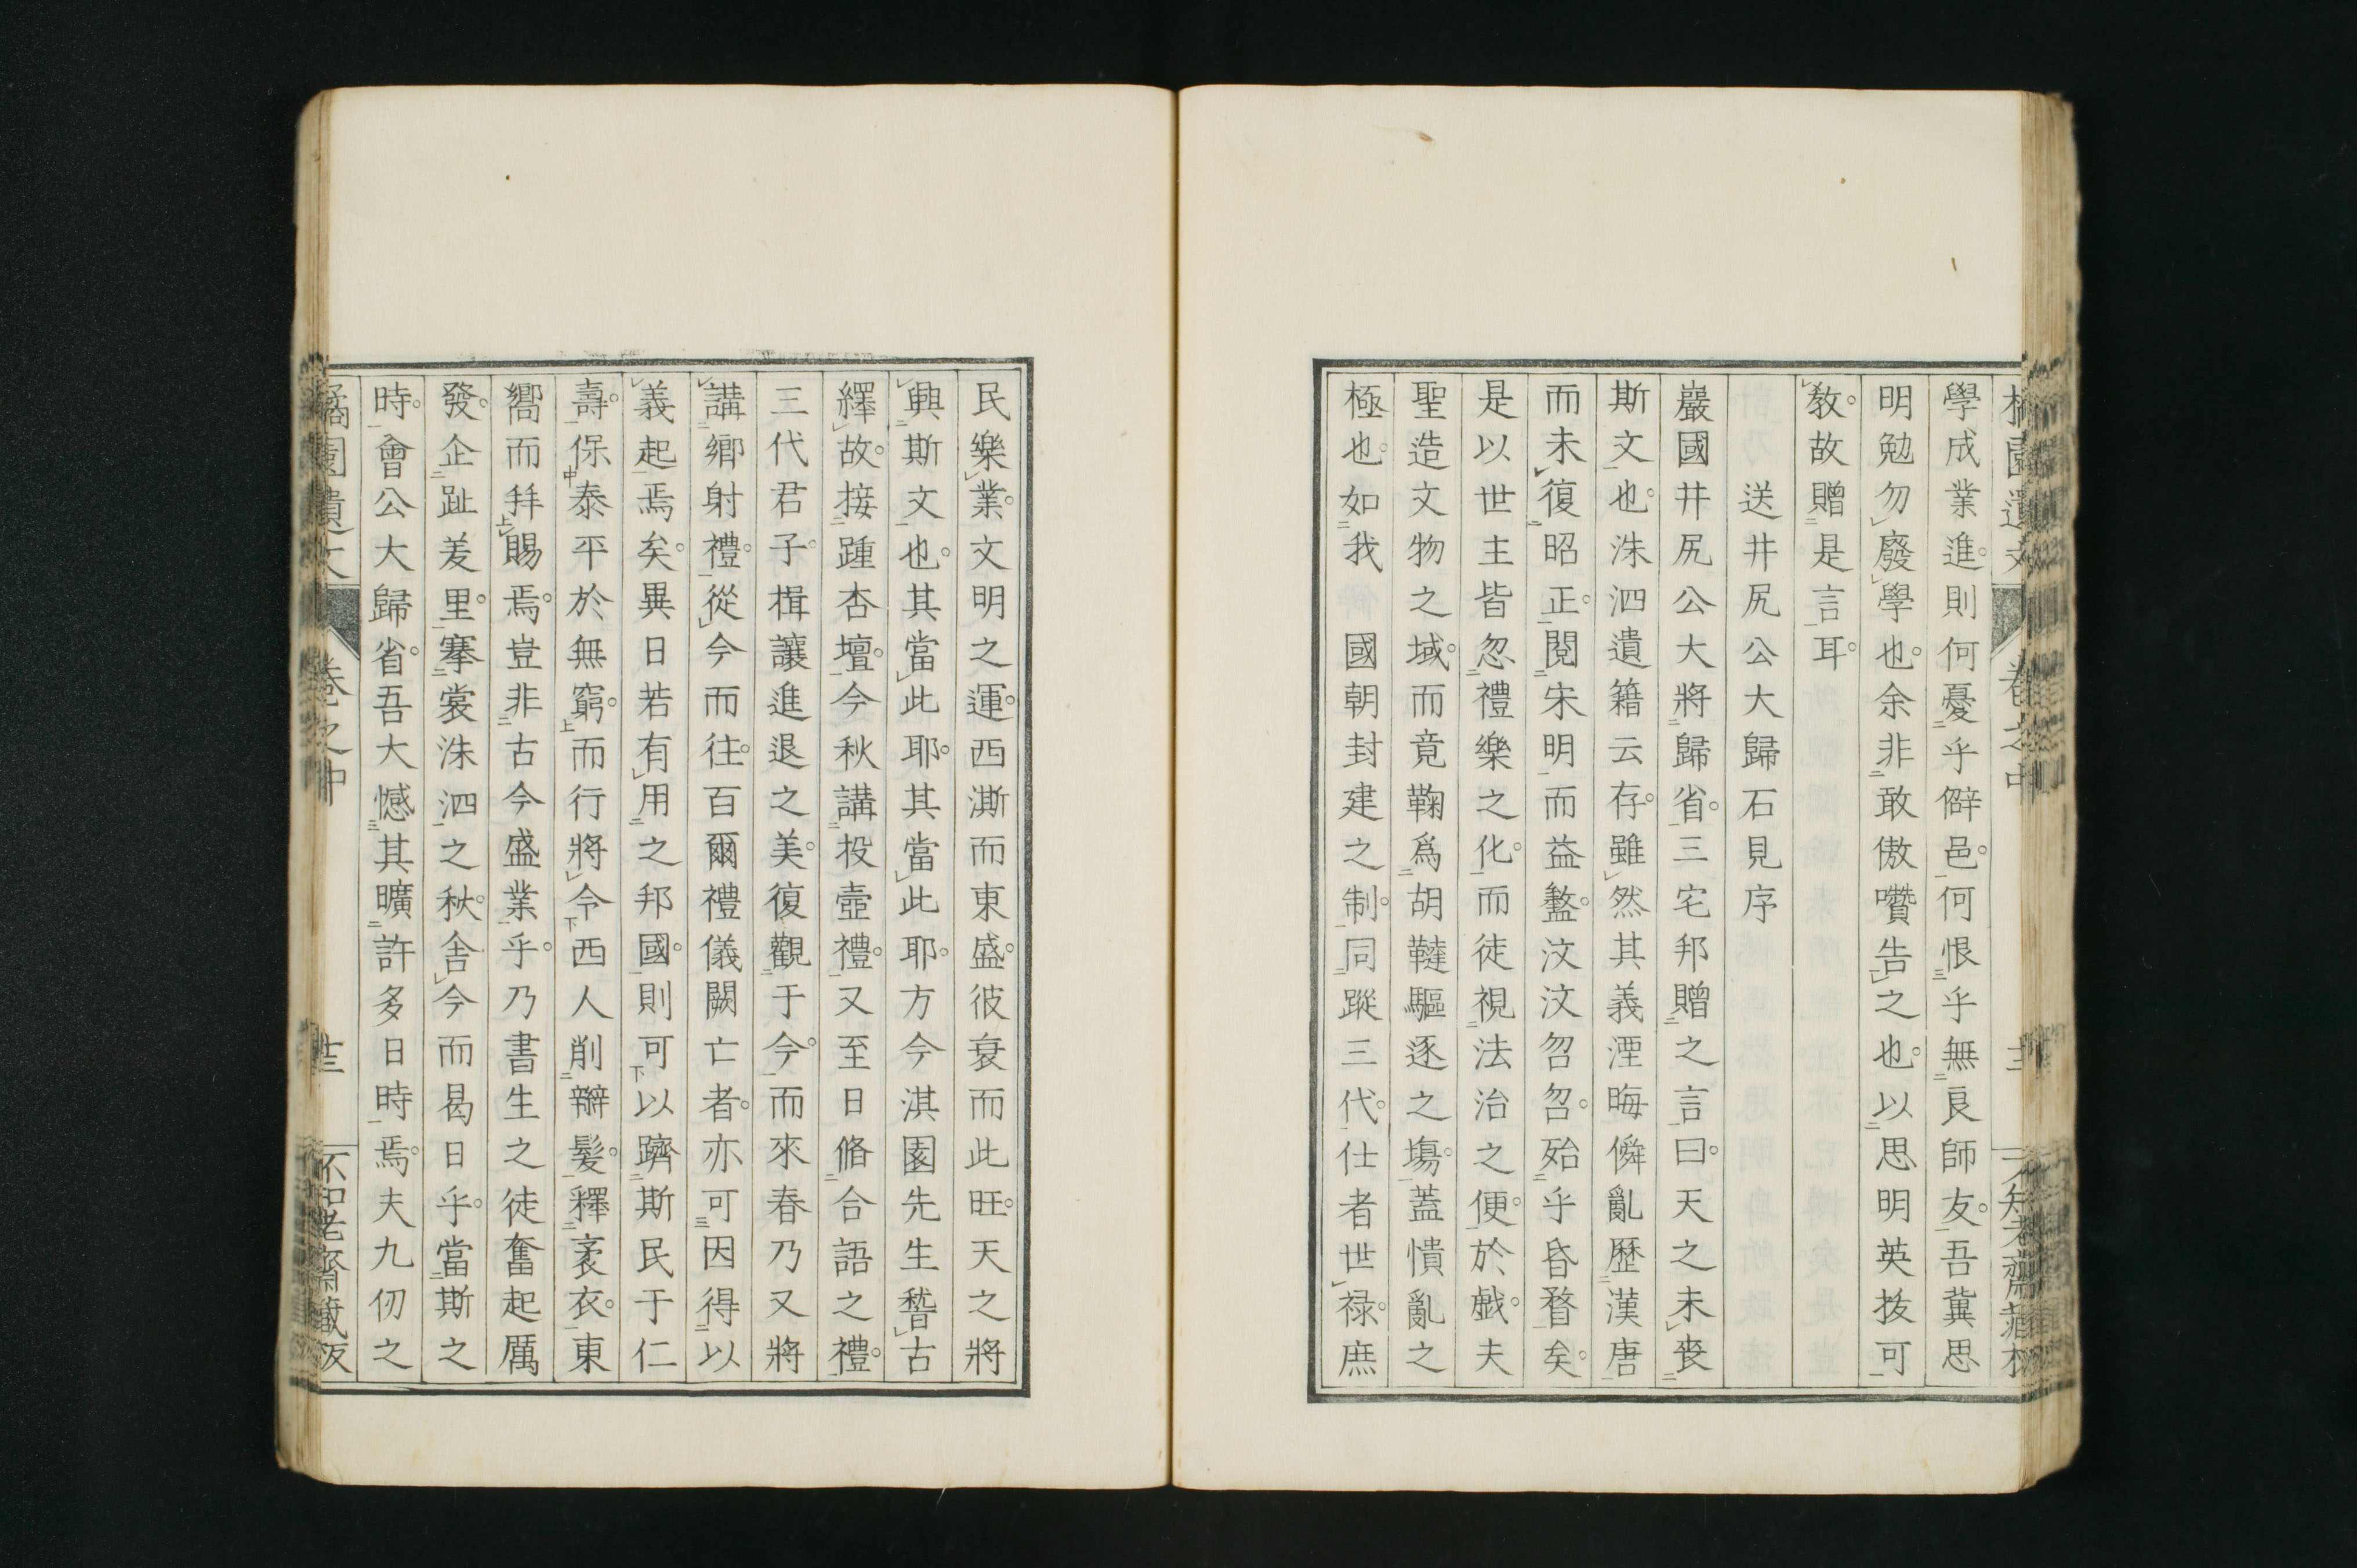 學成業進則何憂乎僻邑何恨乎無良師友吾冀思
明勉勿廢學也余非敢傲囋告之也以思明英拔可
敎故贈是言耳
送井尻公大歸石見序
巖國井尻公大將歸省三宅邦贈之言曰天之未喪
斯文也洙泗遺籍云存雖然其義湮晦僢亂歷漢唐
而未復昭正閱宋明而益盭汶汶曶曶殆乎昏瞀矣
是以世主皆忽禮樂之化而徒視法治之便於戲夫
聖造文物之域而竟鞠爲胡韃驅逐之塲蓋憒亂之
極也如我 國朝封建之制同蹤三代仕者世禄庶
民樂業文明之運西澌而東盛彼衰而此旺天之將
興斯文也其當此耶其當此耶方今淇園先生嵆古
繹故接踵杏壇今秋講投壺禮又至日脩合語之禮
三代君子揖讓進退之美復觀于今而來春乃又將
講鄉射禮從今而往百爾禮儀闕亡者亦可因得以
義起焉矣異日若有用之邦國則可以躋斯民于仁
壽保泰平於無窮而行將令西人削辮髮釋袤衣東
嚮而拜賜焉豈非古今盛業乎乃書生之徒奮起厲
發企趾羑里搴裳洙泗之秋舎今而曷日乎當斯之
時會公大歸省吾大憾其曠許多日時焉夫九仞之
橘園遺文 卷之中 十三